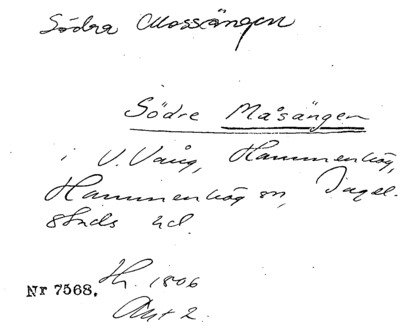 Södra Mossängen
Södre Måsängen
i V. Vång, Hammenhög,
Hammenhög sn, Ingel-
stads hd.
Nr 7568. Hh. 1806
Akt 2